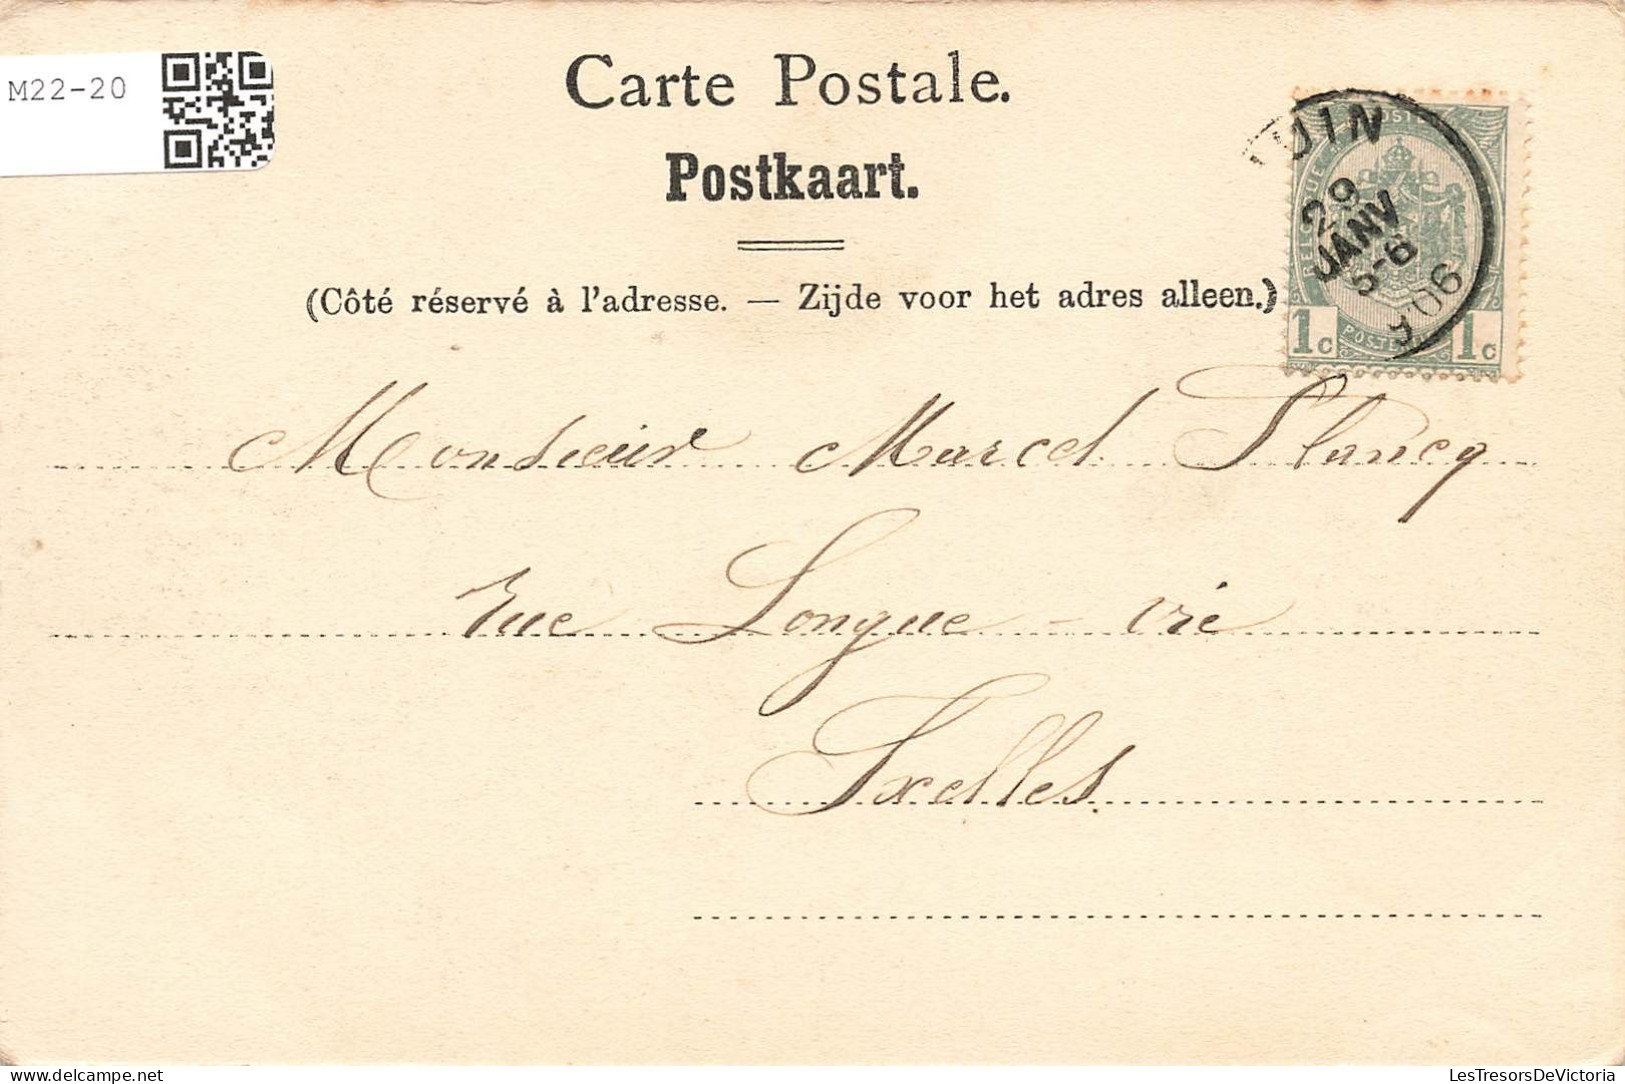 M22-20
Carte Postale.
Postkaart.
(Côté réservé à l'adresse. — Zijde voor het adres alleen.)
29
JANV
5-6
1906
1c 1c
Monsieur Marcel Plancq
rue Longue - vie
Ixelles
LesTresorsDeVictoria